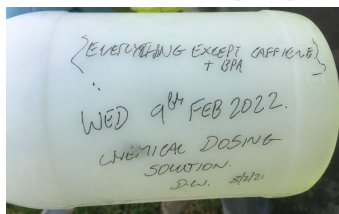 {EVERYTHING EXCEPT CAFFIENE}
+ BPA
WED 9th FEB 2022.
CHEMICAL DOSING
SOLUTION.